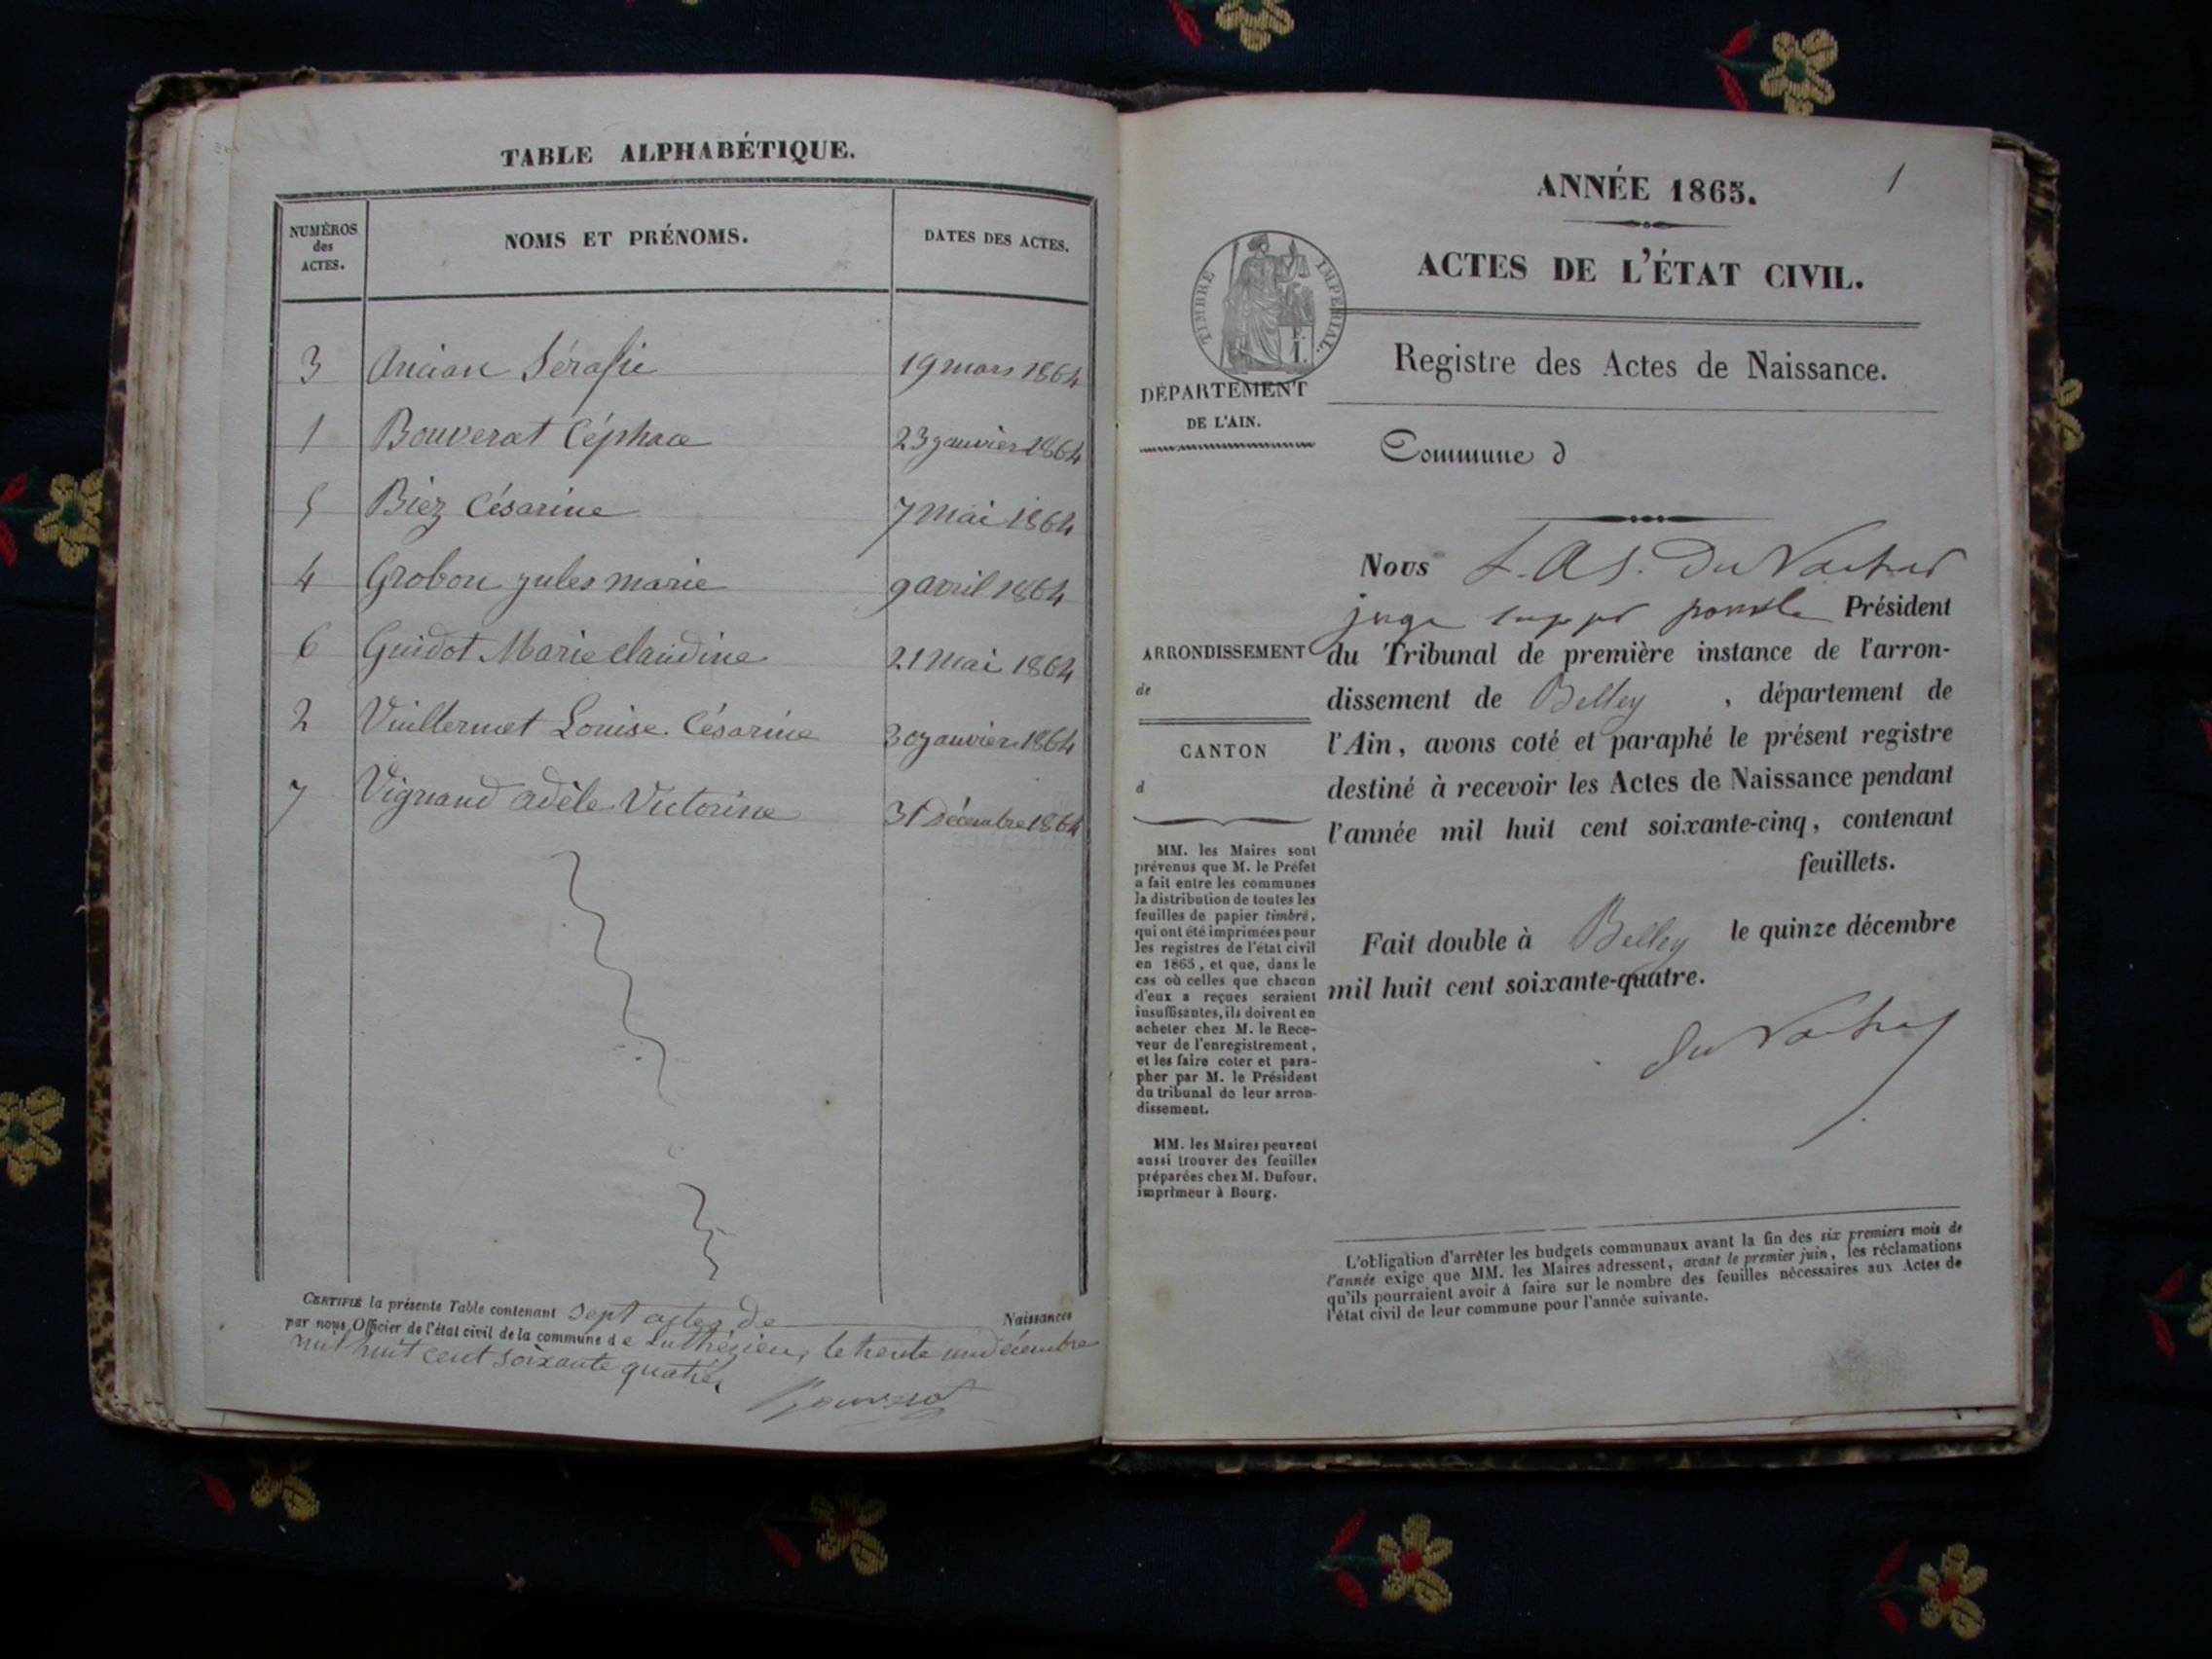 TABLE ALPHABÉTIQUE.
NUMÉROS
des
ACTES.
NOMS ET PRÉNOMS.
DATES DES ACTES.
3 Ancian Sérafie 19 mars 1864
1 Bouverat Céphase 23 janvier 1864
5 Biez Césarine 7 Mai 1864
4 Grobon jules marie 9 avril 1864
6 Guidot Marie claudine 21 Mai 1864
2 Vuillermet Louise Césarine 30 janvier 1864
7 Vignand adèle Victorine 31 Décembre 1864
CERTIFIÉ la présente Table contenant sept actes de Naissances
par nous, Officier de l'état civil de la commune de Luthézieu, le trente un décembre
mil huit cent soixante quatre
Bouverat
1
ANNÉE 1865.
ACTES DE L'ÉTAT CIVIL.
TIMBRE IMPÉRIAL.
F.
1.
Registre des Actes de Naissance.
DÉPARTEMENT
DE L'AIN.
Commune d
ARRONDISSEMENT
de
CANTON
d
MM. les Maires sont
prévenus que M. le Préfet
a fait entre les communes
la distribution de toutes les
feuilles de papier timbré,
qui ont été imprimées pour
les registres de l'état civil
en 1865, et que, dans le
cas où celles que chacun
d'eux a reçues seraient
insuffisantes, ils doivent en
acheter chez M. le Rece-
veur de l'enregistrement,
et les faire coter et para-
pher par M. le Président
du tribunal de leur arron-
dissement.
MM. les Maires peuvent
aussi trouver des feuilles
préparées chez M. Dufour,
imprimeur à Bourg.
Nous
juge Président
du Tribunal de première instance de l'arron-
dissement de Belley , département de
l'Ain, avons coté et paraphé le présent registre
destiné à recevoir les Actes de Naissance pendant
l'année mil huit cent soixante-cinq, contenant
feuillets.
Fait double à Belley le quinze décembre
mil huit cent soixante-quatre.
L'obligation d'arrêter les budgets communaux avant la fin des six premiers mois de
l'année exige que MM. les Maires adressent, avant le premier juin, les réclamations
qu'ils pourraient avoir à faire sur le nombre des feuilles nécessaires aux Actes de
l'état civil de leur commune pour l'année suivante.